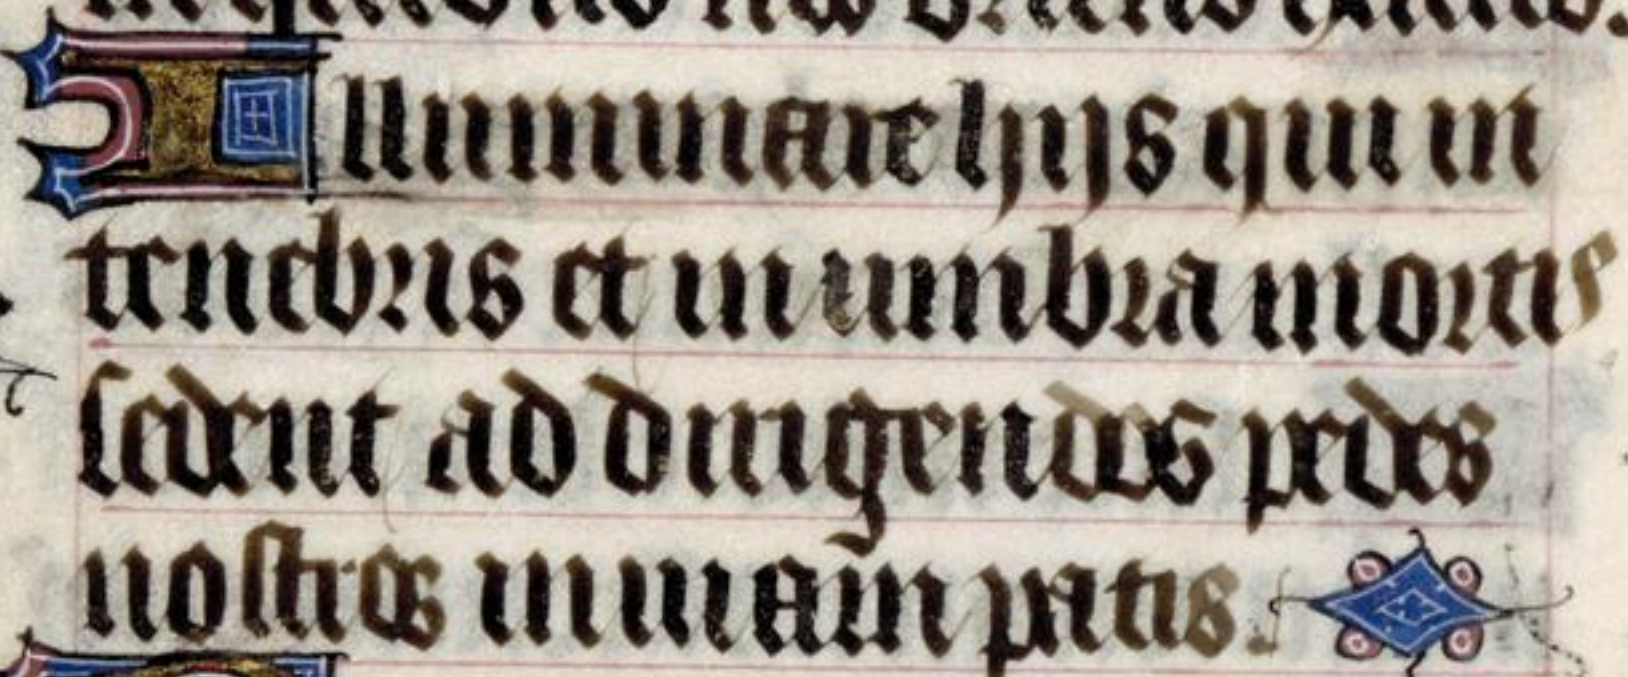 nos oriens exalto.
Illuminare hijs qui in
tenebris et in umbra mortis
sedent ad dirigendos pedes
nostros in uiam pacis.